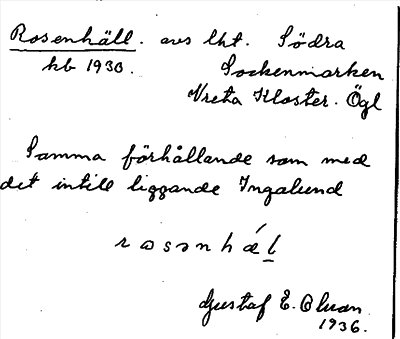 Rosenhäll. avs lht. Södra
hb 1930. Sockenmarken
Vreta Kloster. Ögl
Samma förhållande som med
det intill liggande Ingalund
rosənhǽl
Gustaf E. Olson
1936.